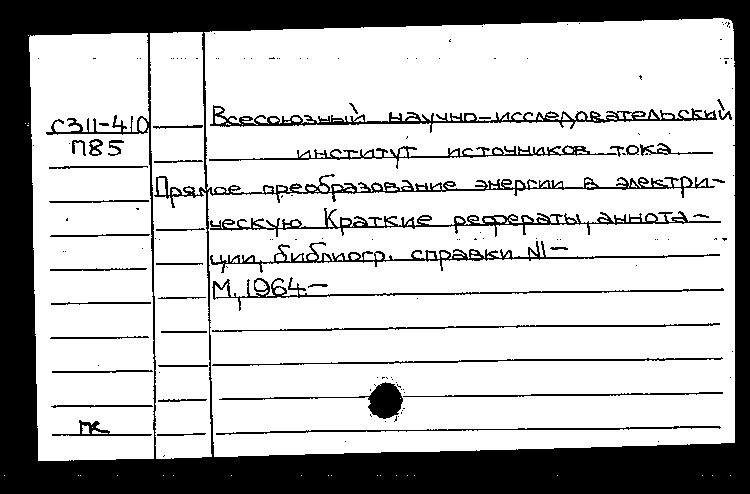 С311-410 Всесоюзный научно-исследовательский
П85 институт источников тока
Прямое преобразование энергии в электри-
ческую. Краткие рефераты, аннота-
ции, библиогр. справки. N1-
М., 1964.-
пк